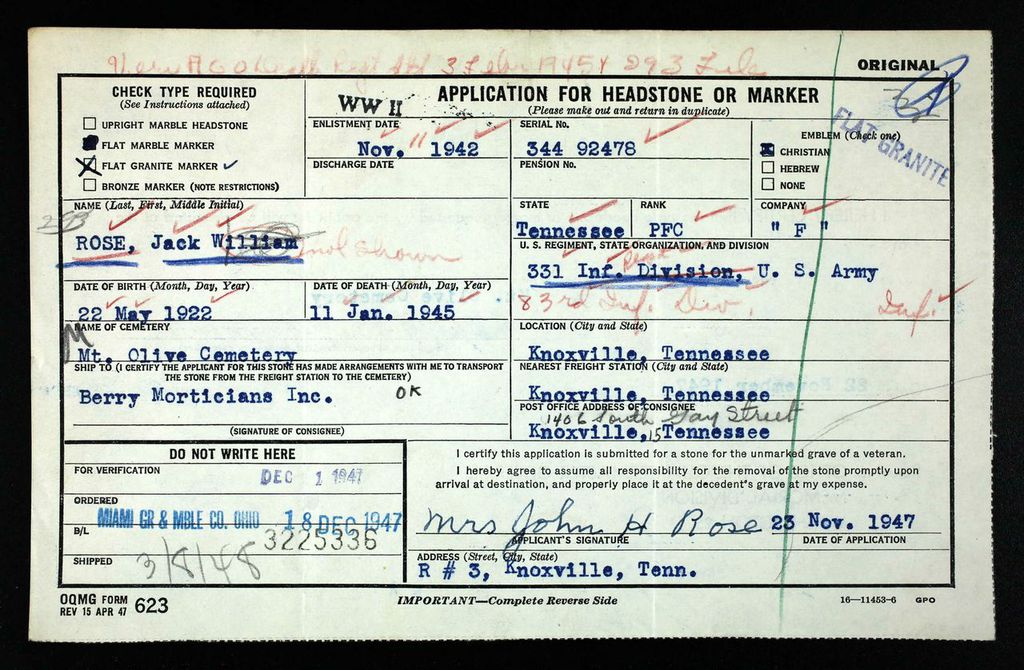 3 Feb 1945
ORIGINAL
CHECK TYPE REQUIRED
(See Instructions attached)
UPRIGHT MARBLE HEADSTONE
FLAT MARBLE MARKER
FLAT GRANITE MARKER
BRONZE MARKER (NOTE RESTRICTIONS)
WW II
APPLICATION FOR HEADSTONE OR MARKER
(Please make out and return in duplicate)
ENLISTMENT DATE
Nov. 11 1942
DISCHARGE DATE
SERIAL No.
344 92478
PENSION No.
EMBLEM (Check one)
CHRISTIAN
HEBREW
NONE
FLAT GRANITE
NAME (Last, First, Middle Initial)
ROSE, Jack William
not shown
STATE
Tennessee
RANK
PFC
COMPANY
" F "
U. S. REGIMENT, STATE ORGANIZATION, AND DIVISION
331 Inf. Division, U. S. Army
83rd Inf. Div. Inf.
DATE OF BIRTH (Month, Day, Year)
22 May 1922
DATE OF DEATH (Month, Day, Year)
11 Jan. 1945
NAME OF CEMETERY
Mt. Olive Cemetery
LOCATION (City and State)
Knoxville, Tennessee
SHIP TO (I CERTIFY THE APPLICANT FOR THIS STONE HAS MADE ARRANGEMENTS WITH ME TO TRANSPORT
THE STONE FROM THE FREIGHT STATION TO THE CEMETERY)
Berry Morticians Inc. OK
(SIGNATURE OF CONSIGNEE)
NEAREST FREIGHT STATION (City and State)
Knoxville, Tennessee
POST OFFICE ADDRESS OF CONSIGNEE
1406 South Gay Street
Knoxville, 15 Tennessee
DO NOT WRITE HERE
FOR VERIFICATION
DEC 1 1947
ORDERED
MIAMI GR & MBLE CO. OHIO 18 DEC 1947
B/L
3225336
SHIPPED
3/8/48
I certify this application is submitted for a stone for the unmarked grave of a veteran.
I hereby agree to assume all responsibility for the removal of the stone promptly upon
arrival at destination, and properly place it at the decedent's grave at my expense.
Mrs John H Rose 23 Nov. 1947
APPLICANT'S SIGNATURE DATE OF APPLICATION
ADDRESS (Street, City, State)
R # 3, Knoxville, Tenn.
OQMG FORM
REV 15 APR 47 623
IMPORTANT—Complete Reverse Side
16—11453-6 GPO